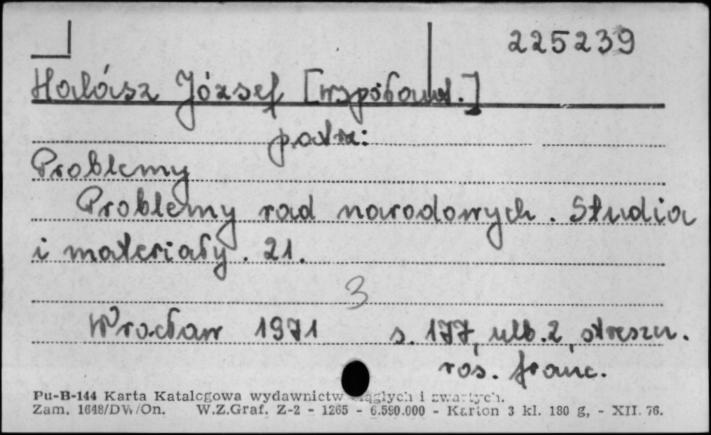 225239
Halász József [współaut.]
patrz:
Problemy
Problemy rad narodowych. Studia
i materiały. 21.
3
Wrocław 1971 s. 177, ulb. 2, streszcz.
ros. franc.
Pu-B-144 Karta Katalogowa wydawnictw ciągłych i zwartych.
Zam. 1648/DW/On. W.Z.Graf. Z-2 - 1265 - 6.590.000 - Karton 3 kl. 180 g, - XII. 76.